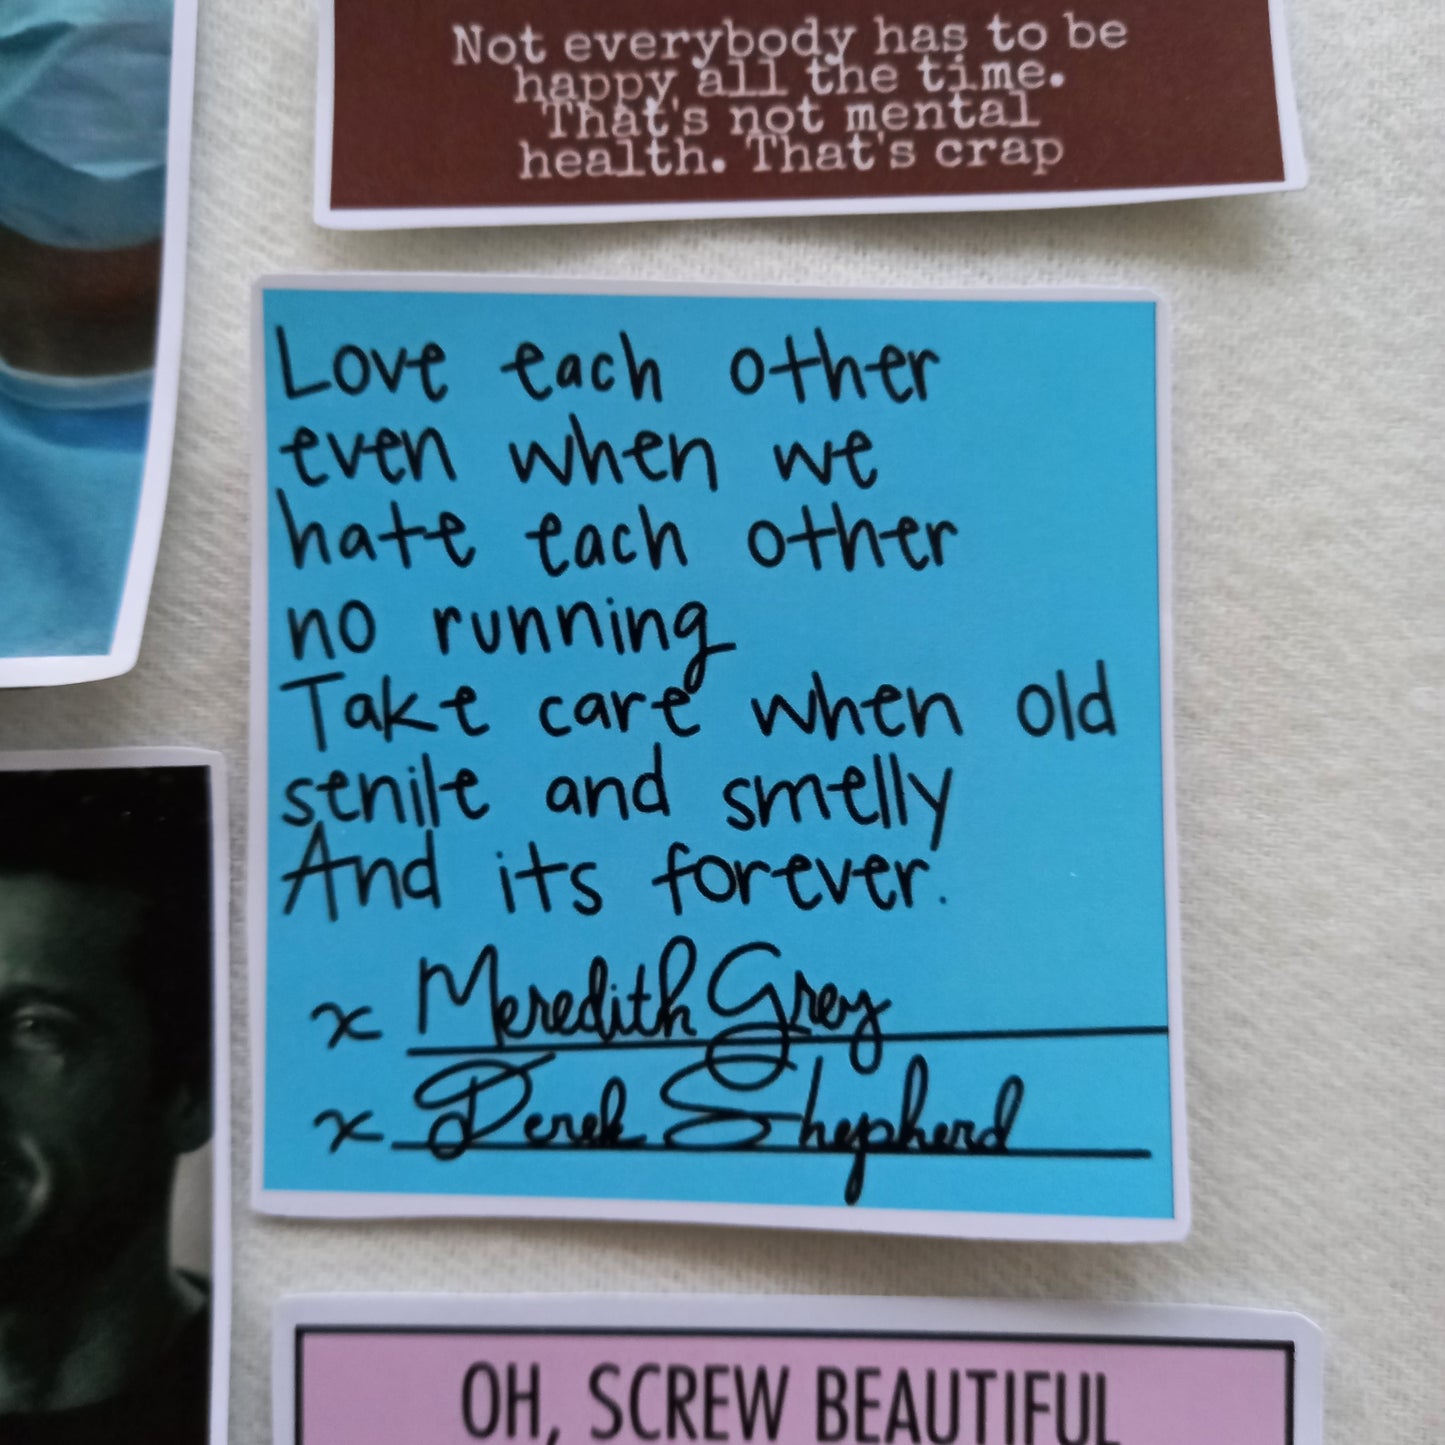 Not everybody has to be
happy all the time.
That's not mental
health. That's crap
Love each other
even when we
hate each other
no running
Take care when old
senile and smelly
And its forever.
x Meredith Grey
x Derek Shepherd
OH, SCREW BEAUTIFUL